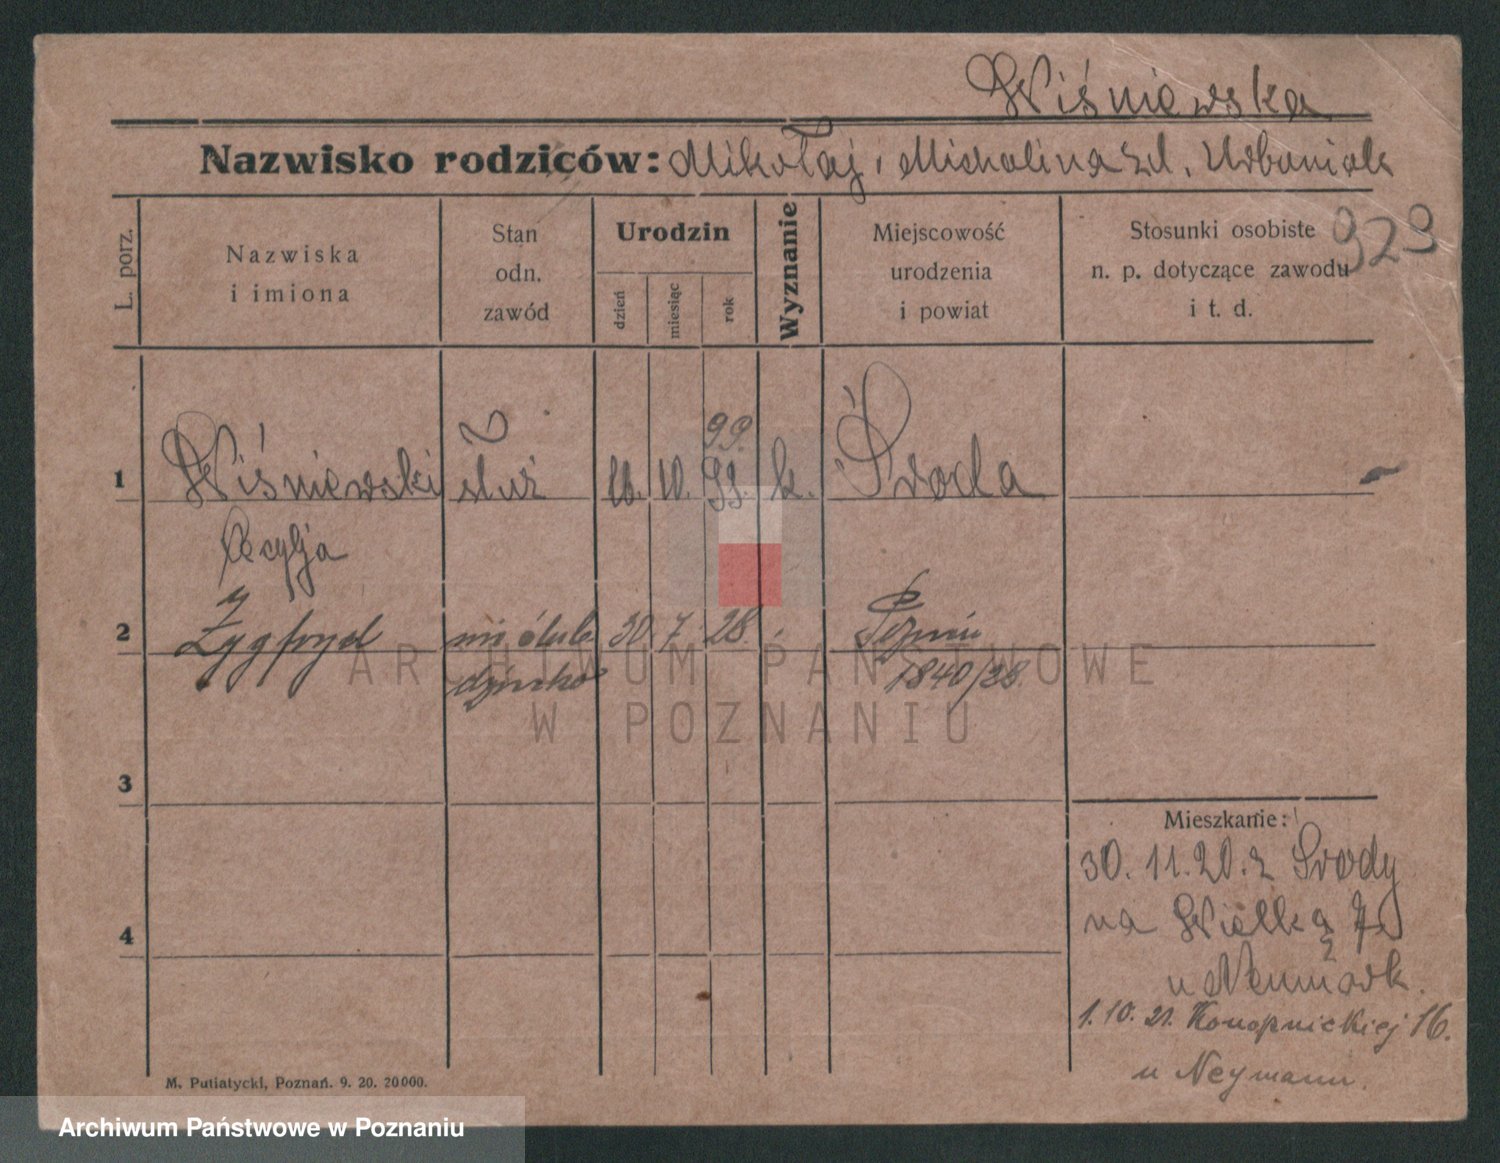 Wiśniewska
Nazwisko rodziców: Mikołaj i Michalina zd. Urbaniak
923
L. porz.
Nazwiska
i imiona
Stan
odn.
zawód
Urodzin
dzień
miesiąc
rok
Wyznanie
Miejscowość
urodzenia
i powiat
Stosunki osobiste
n. p. dotyczące zawodu
i t. d.
99.
1 Wiśniewski służ 10. 99. k. Środa
Cecylja
2 Zygfryd nieślub 30. 7. 28
dziecko 1840/28
ARCHIWUM PAŃSTWOWE
W POZNANIU
3
Mieszkanie:
30. 11. 20. z Środy
4
na Wielką
u Neumark.
1. 10. 21. Konopnickiej 16.
u Neymann.
M. Putiatycki, Poznań. 9. 20. 20000.
Archiwum Państwowe w Poznaniu